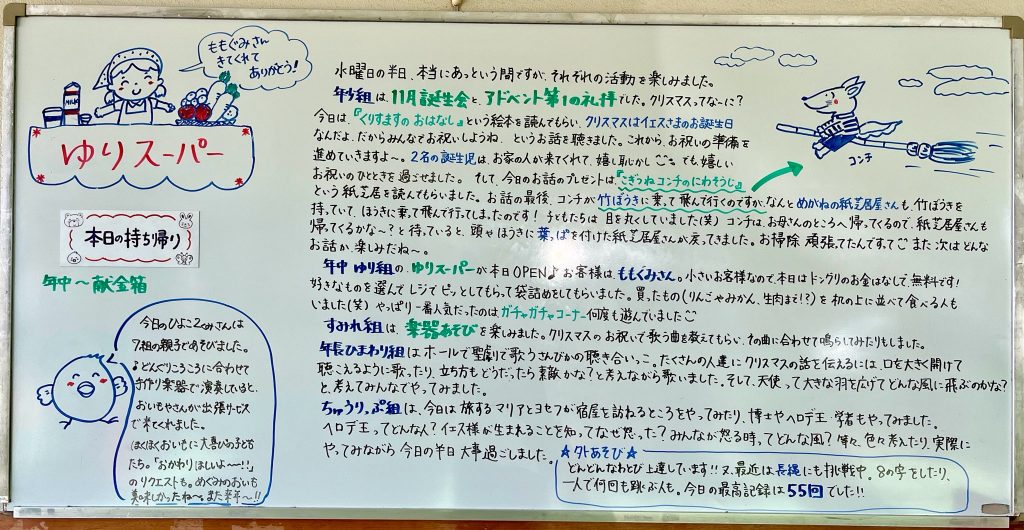 ももぐみさん
きてくれて
ありがとう!
MILK
ゆりスーパー
本日の持ち帰り
年中〜献金箱
今日のひよこ2くみさんは
7組の親子であそびました。
♪どんぐりころころに合わせて
手作り楽器で演奏していると、
おいもやさんが出張サービス
で来てくれました。
ほくほくおいもに大喜びの子ども
たち。「おかわりほしいよ〜!!」
のリクエストも。めぐみのおいも
美味しかったね〜。また来年〜!!
水曜日の半日、本当にあっという間ですが、それぞれの活動を楽しみました。
年少組は、11月誕生会と、アドベント第1の礼拝でした。クリスマスってな〜に?
今日は、『くりすますの おはなし』という絵本を読んでもらい、クリスマスはイエスさまのお誕生日
なんだよ、だからみんなでお祝いしようね、というお話を聴きました。これから、お祝いの準備を
進めていきますよ〜。2名の誕生児は、お家の人が来てくれて、嬉し恥かし でも嬉しい
お祝いのひとときを過ごせました。そして、今日のお話のプレゼントは、『こぎつねコンチのにわそうじ』
という紙芝居を読んでもらいました。お話の最後、コンチが竹ぼうきに乗って飛んで行くのですが、なんとめがねの紙芝居屋さんも、竹ぼうきを
持っていて、ほうきに乗って飛んで行ってしまったのです!子どもたちは目を丸くしていました(笑) コンチは、お母さんのところへ帰ってくるので、紙芝居屋さんも
帰ってくるかな〜?と待っていると、頭やほうきに葉っぱを付けた紙芝居屋さんが戻ってきました。お掃除頑張ってたんですって また次はどんな
お話か楽しみだね〜。
コンチ
年中 ゆり組の、ゆりスーパーが本日OPEN♪お客様は、ももぐみさん。小さいお客様なので、本日はドングリのお金はなしで、無料です!
好きなものを選んでレジでピッとしてもらって袋詰めをしてもらいました。買ったもの(りんごやみかん、生肉まで!?)を机の上に並べて食べる人も
いました(笑) やっぱり一番人気だったのはガチャガチャコーナー何度も遊んでいました
すみれ組は、楽器あそびを楽しみました。クリスマスのお祝いで歌う曲を教えてもらい、その曲に合わせて鳴らしてみたりもしました。
年長ひまわり組はホールで聖劇で歌うさんびかの聴き合いっこ。たくさんの人達にクリスマスの話を伝えるには、口を大きく開けて
聴こえるように歌ったり、立ち方もどうだったら素敵かな?と考えながら歌いました。そして、天使って大きな羽を広げてどんな風に飛ぶのかな?
と考えてみんなでやってみました。
ちゅうりっぷ組は、今日は旅するマリアとヨセフが宿屋を訪ねるところをやってみたり、博士やヘロデ王、学者もやってみました。
ヘロデ王ってどんな人?イエス様が生まれることを知ってなぜ怒った?みんなが怒る時ってどんな風?等々、色々考えたり、実際に
やってみながら今日の半日大事に過ごしました。
★外あそび★
どんどんなわとび上達しています!!又、最近は長縄にも挑戦中。8の字をしたり、
一人で何回も跳ぶ人も。今日の最高記録は55回でした!!